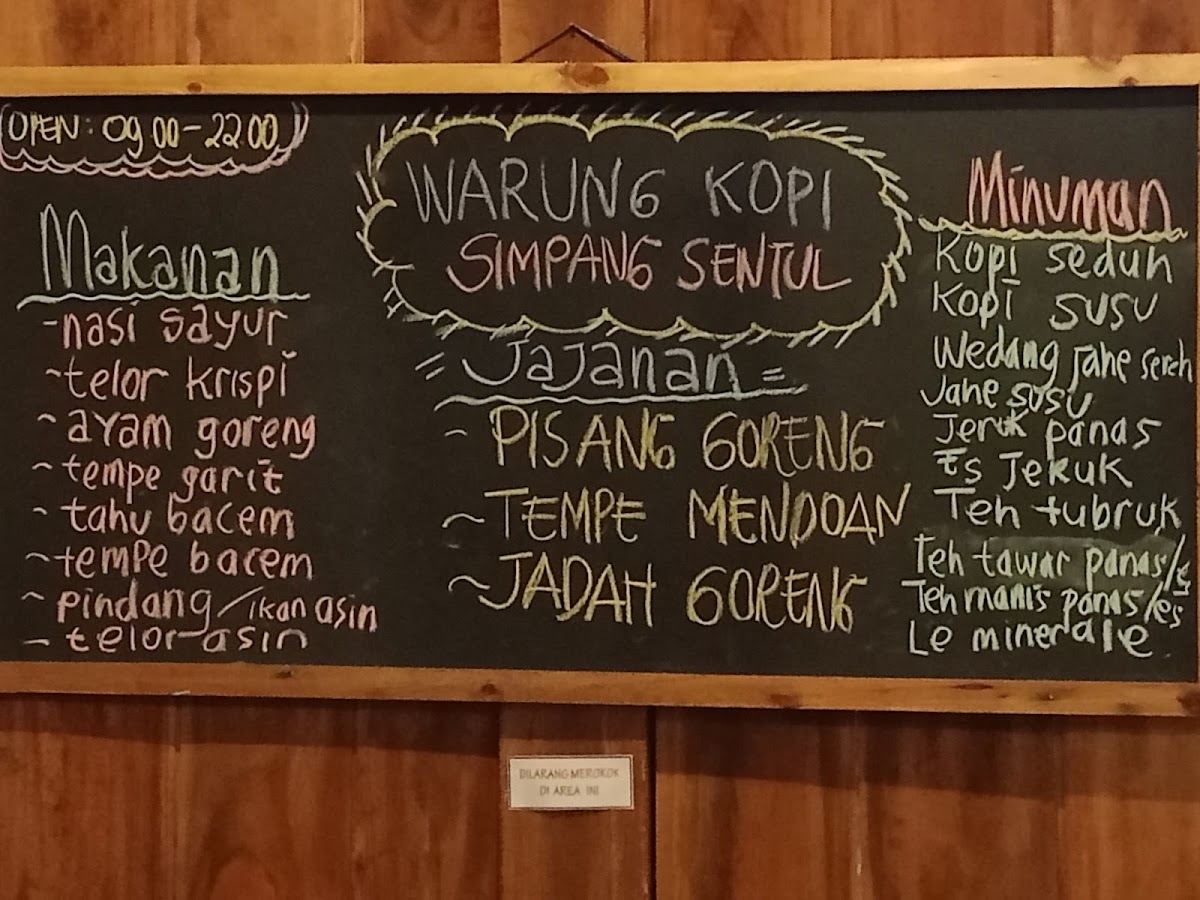 OPEN: 09.00-22.00
WARUNG KOPI
SIMPANG SENTUL
Makanan
-nasi sayur
~telor krispi
~ayam goreng
~tempe garit
-tahu bacem
~tempe bacem
~pindang/ikan asin
-telor asin
=Jajanan=
~PISANG GORENG
~TEMPE MENDOAN
~JADAH GORENG
Minuman
Kopi seduh
Kopi susu
Wedang jahe sereh
Jahe susu
Jeruk panas
Es Jeruk
Teh tubruk
Teh tawar panas/es
Teh manis panas/es
Le minerale
DILARANG MEROKOK
DI AREA INI